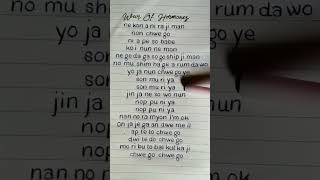 War Of Hormones
ne kon a ni ra ji man
non chwe go
ni a pe so babe
ko i nun ne mon
ne go da ga so go ship ji man
no mu shim ha ge a rum da wo
yo ja nun chwe go ye
son mu ri ya
son mu ri ya
jin ja ne so wo nun
nop pu ni ya
nop pu ni ya
nan no ra myon I'm ok
on ja je ga an dwe me il
ap te to chwe go
dwi te do chwe go
mo ri bu to bal kut ka ji
chwe go chwe go